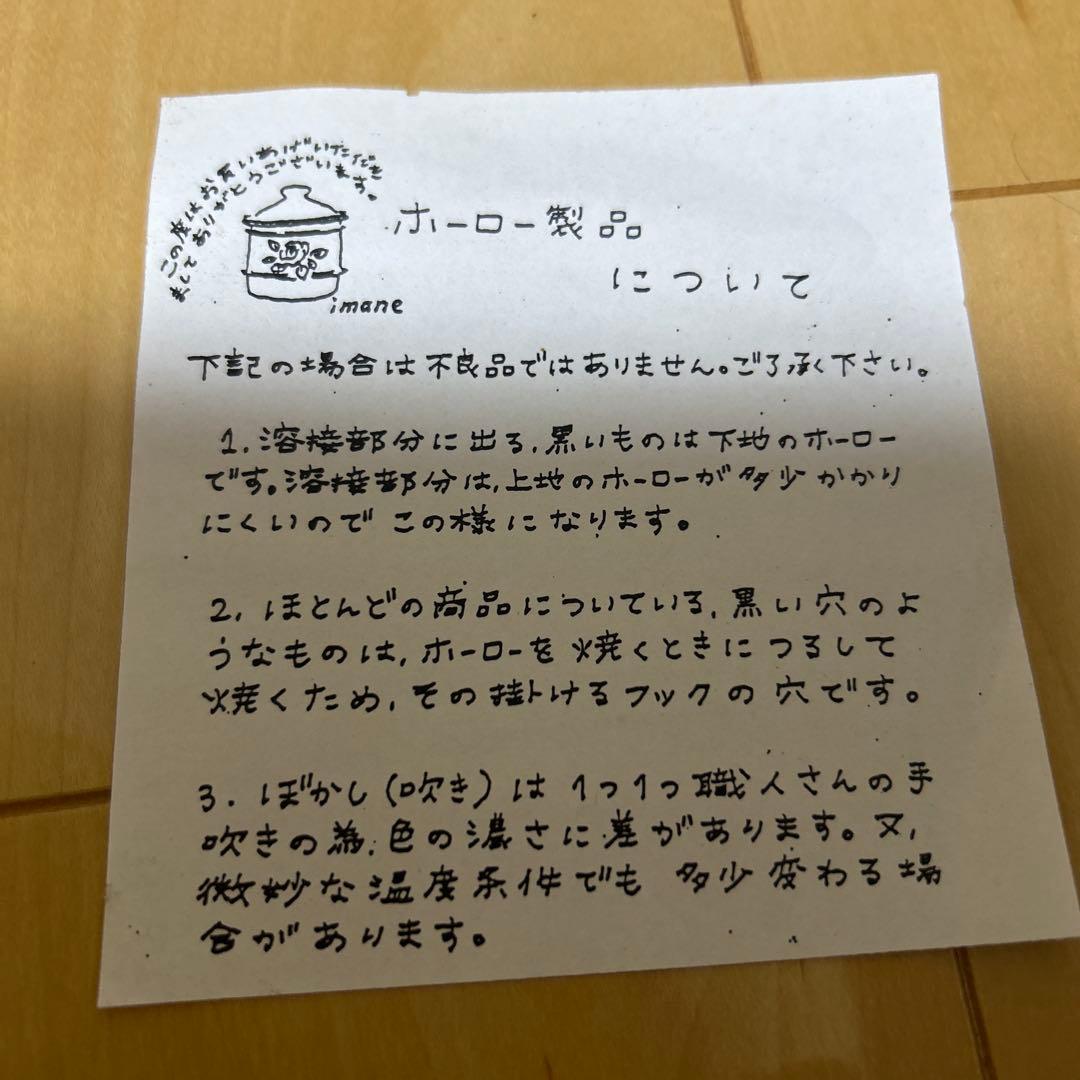 この度はお買いあげいただき
ましてありがとうございます。
imane
ホーロー製品
について
下記の場合は不良品ではありません。ご了承く下さい。
1. 溶接部分に出る、黒いものは下地のホーロー
です。溶接部分は、上地のホーローが多少かかり
にくいので この様になります。
2. ほとんどの商品についている、黒い穴のよ
うなものは、ホーローを焼くときにつるして
焼くため、その掛けるフックの穴です。
3. ぼかし(吹き)は1つ1つ職人さんの手
吹きの為、色の濃さに差があります。又、
微妙な温度条件でも 多少変わる場
合があります。